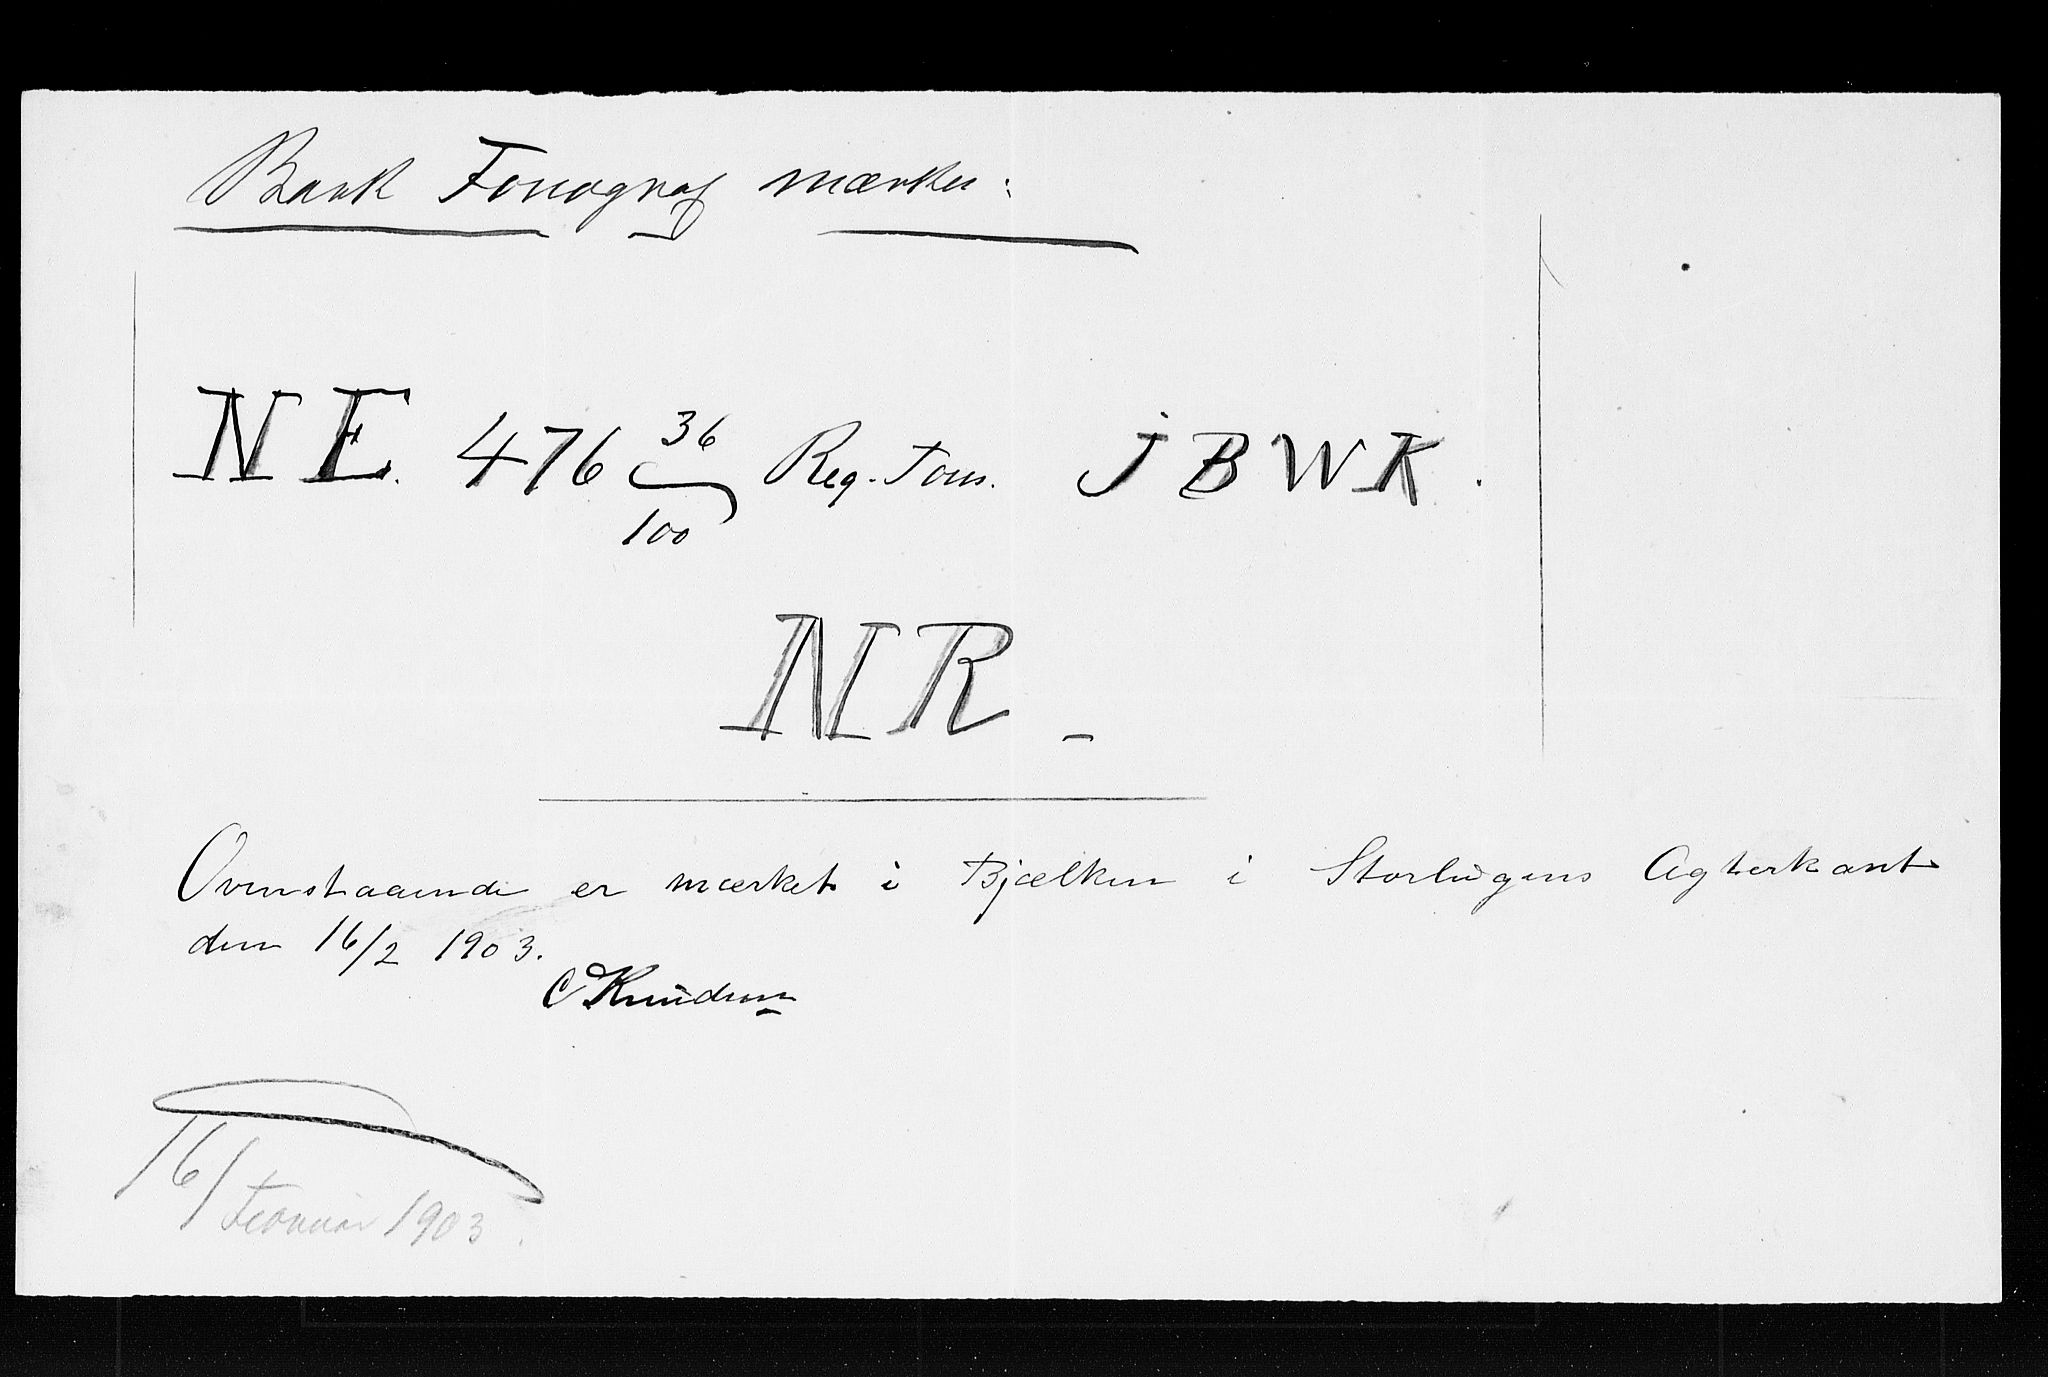 Bark Fonograf mærkes:
NE. 476 36/100 Reg. Tons. JBWK.
NR -
Ovenstaaende er mærket i Bjælken i Storlugens Agterkant
den 16/2 1903.
C Knudsen
16/ Februar 1903.